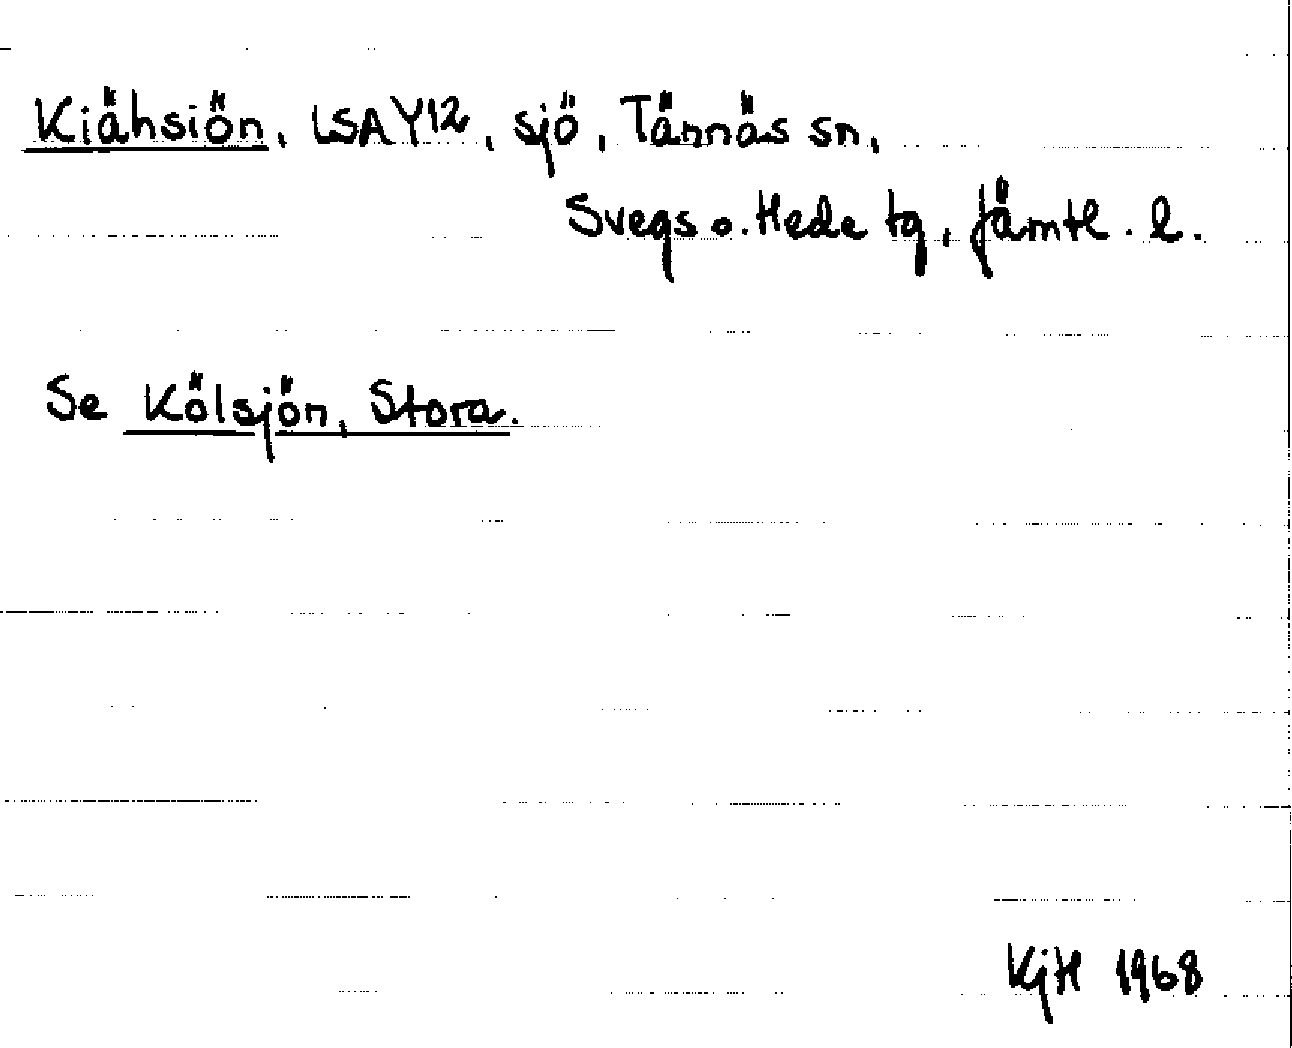 Kiähsiön, LSA Y12, sjö, Tännäs sn,
Svegs o. Hede tg, Jämtl. l.
Se Kölsjön, Stora.
KjH 1968